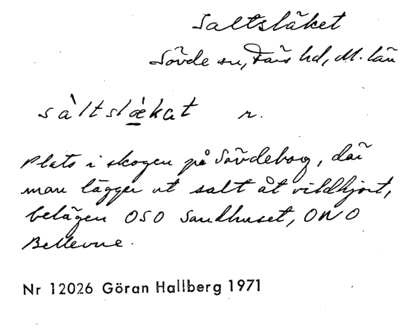 Saltsläket
Sövde sn, Färs hd, M. län
sàltslǽkat n.
Plats i skogen på Sövdeborg, där
man lägger ut salt åt vildhjort,
belägen OSO Sandhuset, ONO
Bellevue.
Nr 12026 Göran Hallberg 1971